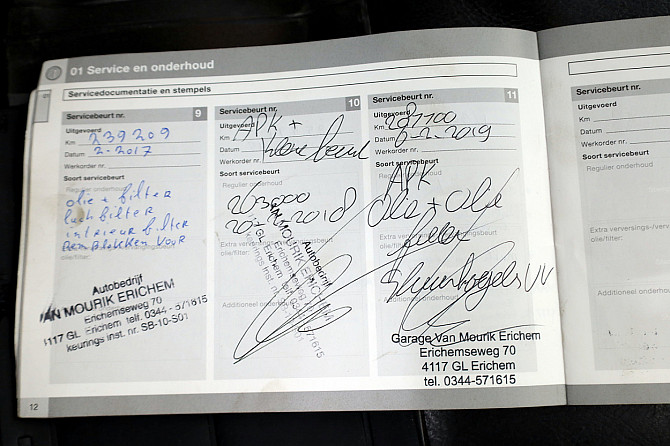 01 Service en onderhoud
Servicedocumentatie en stempels
Servicebeurt nr. 9
Uitgevoerd
Km 239209
Datum 2-2017
Werkorder nr.
Soort servicebeurt
Regulier onderhoud
olie + filter
luchfilter
interieur filter
Remblokken voor
olie/filter:
Autobedrijf
VAN MOURIK ERICHEM
Erichemseweg 70
4117 GL Erichem telf. 0344 - 571815
keurings inst. nr. SB-10-S01
Servicebeurt nr. 10
Uitgevoerd
APK +
Km
Datum
kleine beurt
Werkorder nr.
Soort servicebeurt
Regulier onderhoud
2018
Extra verversings
olie/filter:
Additioneel onderhoud
Autobedrijf
VAN MOURIK ERICHEM
Erichemseweg 70
4117 GL Erichem
Servicebeurt nr. 11
Uitgevoerd
Km
Datum 8-2-2019
Werkorder nr.
Soort servicebeurt
APK
Regulier onderhoud
olie + olie
Extra verversings
olie/filter:
Additioneel onderhoud
Garage Van Mourik Erichem
Erichemseweg 70
4117 GL Erichem
tel. 0344-571615
Servicebeurt nr.
Uitgevoerd
Km
Datum
Werkorder nr.
Soort servicebeurt
Regulier onderhoud
Extra verversings-/vervangin
olie/filter:
Additioneel onderhoud
12